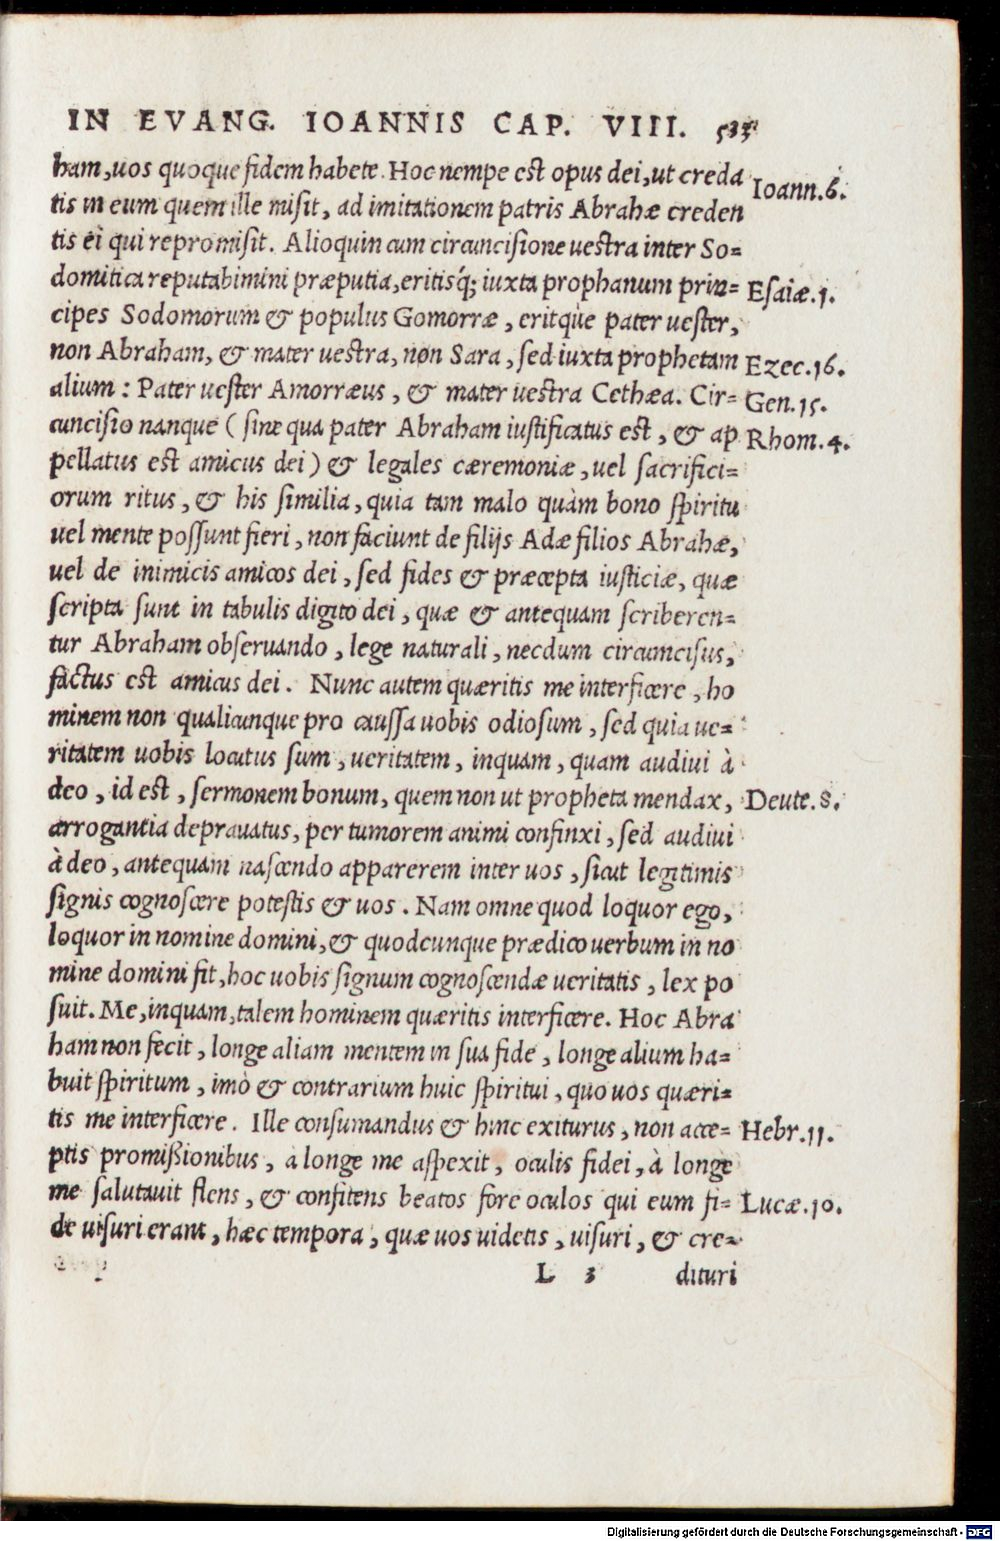 IN EVANG. IOANNIS CAP. VIII.
ham, uos quoque fidem habete. Hoc nempe est opus dei, ut creda
Ioann.6.
tis in eum quem ille misit, ad imitationem patris Abrahæ creden
tis ei qui repromisit. Alioquin cum circuncisione uestra inter So-
domitica reputabimini præputia, eritisq́; iuxta prophanum prin-
Esaiæ.1.
cipes Sodomorum & populus Gomorræ, eritque pater uester,
non Abraham, & mater uestra, non Sara, sed iuxta prophetam
Ezec.16.
alium: Pater uester Amorræus, & mater uestra Cethæa. Cir-
Gen.15.
cuncisio nanque (sine qua pater Abraham iustificatus est, & ap
Rhom.4.
pellatus est amicus dei) & legales cæremoniæ, uel sacrifici-
orum ritus, & his similia, quia tam malo quàm bono spiritu
uel mente possunt fieri, non faciunt de filijs Adæ filios Abrahæ,
uel de inimicis amicos dei, sed fides & præcepta iusticiæ, quæ
scripta sunt in tabulis digito dei, quæ & antequam scriberen-
tur Abraham obseruando, lege naturali, necdum circumcisus,
factus est amicus dei. Nunc autem quæritis me interficere, ho
minem non qualicunque pro caussa uobis odiosum, sed quia ue-
ritatem uobis locutus sum, ueritatem, inquam, quam audiui à
deo, id est, sermonem bonum, quem non ut propheta mendax,
Deute.8.
arrogantia deprauatus, per tumorem animi confinxi, sed audiui
à deo, antequam nascendo apparerem inter uos, sicut legitimis
signis cognoscere potestis & uos. Nam omne quod loquor ego,
loquor in nomine domini, & quodcunque prædico uerbum in no
mine domini fit, hoc uobis signum cognoscendæ ueritatis, lex po
suit. Me, inquam, talem hominem quæritis interficere. Hoc Abra
ham non fecit, longe aliam mentem in sua fide, longe alium ha-
buit spiritum, imò & contrarium huic spiritui, quo uos quæri-
tis me interficere. Ille consumandus & hinc exiturus, non acce-
Hebr.11.
ptis promißionibus, à longe me aspexit, oculis fidei, à longe
me salutauit flens, & confitens beatos fore oculos qui eum fi-
Lucæ.10.
de uisuri erant, hæc tempora, quæ uos uidetis, uisuri, & cre-
L 3 dituri
Digitalisierung gefördert durch die Deutsche Forschungsgemeinschaft - DFG